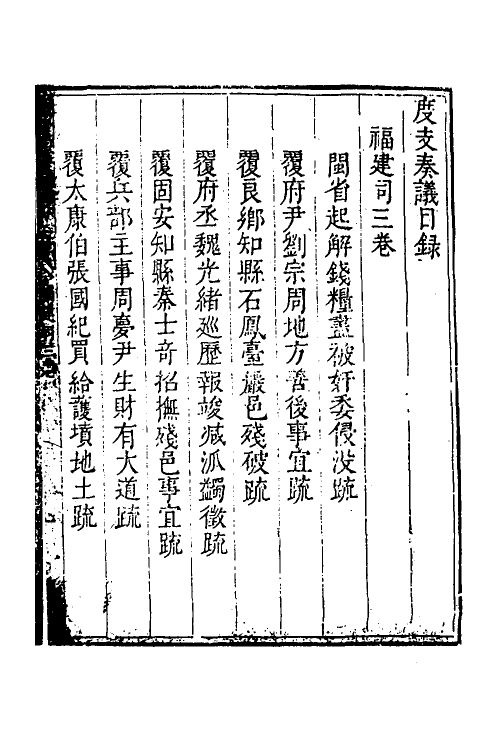 度支奏議目録
福建司三卷
閩省起解錢糧盡被奸委侵没疏
覆府尹劉宗周地方善後事宜疏
覆良鄉知縣石鳳臺巖邑殘破疏
覆府丞魏光緒巡歷報竣減派蠲徵疏
覆固安知縣秦士奇招撫殘邑事宜疏
覆兵部主事周慶尹生財有大道疏
覆太康伯張國紀買給護墳地土疏